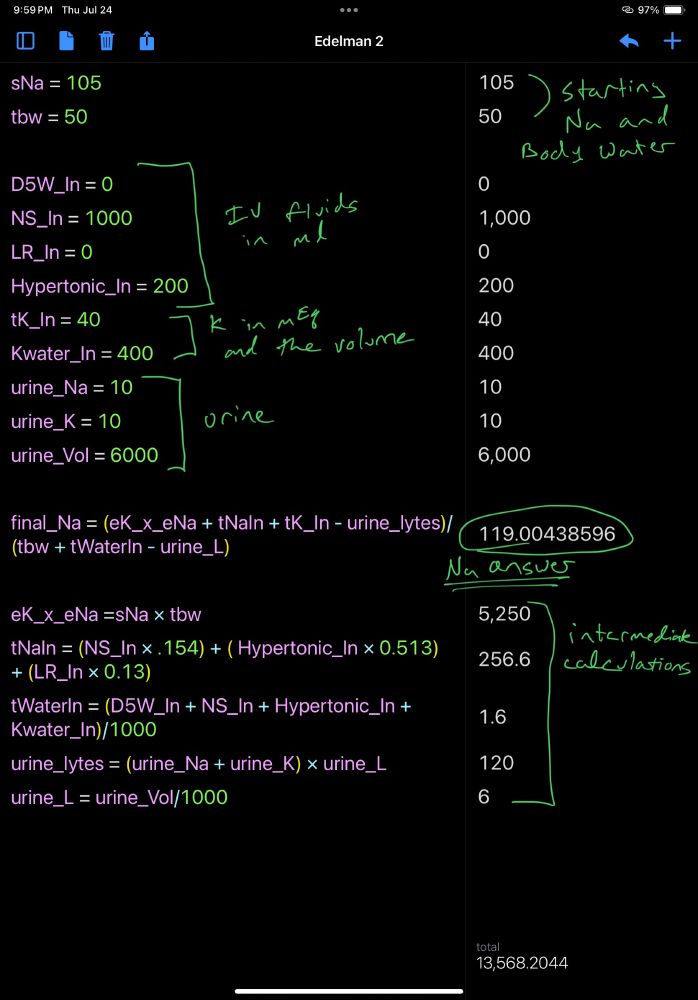 9:59 PM Thu Jul 24
97%
Edelman 2
sNa = 105
105
tbw = 50
50
starting
Na and
Body Water
D5W_In = 0
0
NS_In = 1000
1,000
LR_In = 0
0
Hypertonic_In = 200
200
IV fluids
in ml
tK_In = 40
40
Kwater_In = 400
400
K in mEq
and the volume
urine_Na = 10
10
urine_K = 10
10
urine_Vol = 6000
6,000
urine
final_Na = (eK_x_eNa + tNaIn + tK_In - urine_lytes)/
(tbw + tWaterIn - urine_L)
119.00438596
Na answer
eK_x_eNa =sNa × tbw
5,250
tNaIn = (NS_In × .154) + ( Hypertonic_In × 0.513)
+ (LR_In × 0.13)
256.6
tWaterIn = (D5W_In + NS_In + Hypertonic_In +
Kwater_In)/1000
1.6
urine_lytes = (urine_Na + urine_K) × urine_L
120
urine_L = urine_Vol/1000
6
intermediate
calculations
total
13,568.2044